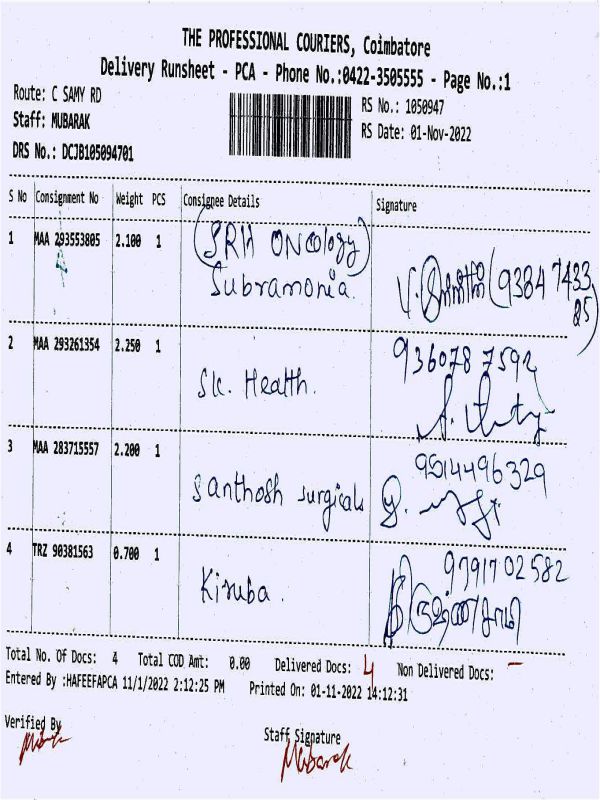 THE PROFESSIONAL COURIERS, Coimbatore
Delivery Runsheet - PCA - Phone No.:0422-3505555 - Page No.:1
Route: C SAMY RD
RS No.: 1050947
Staff: MUBARAK
RS Date: 01-Nov-2022
DRS No.: DCJB105094701
S No Consignment No Weight PCS Consignee Details Signature
1 MAA 293553805 2.100 1 (SRH ONcology)
Subramonia. (93847433
85)
2 MAA 293261354 2.250 1 9360787592
Sk. Health.
3 MAA 283715557 2.200 1 9514496329
Santhosh surgicals
4 TRZ 90381563 0.700 1 9791702582
Kiruba. கிருஷ்ணசாமி
Total No. Of Docs: 4 Total COD Amt: 0.00 Delivered Docs: 4 Non Delivered Docs: -
Entered By :HAFEEFAPCA 11/1/2022 2:12:25 PM Printed On: 01-11-2022 14:12:31
Verified By
Staff Signature
Mubarak